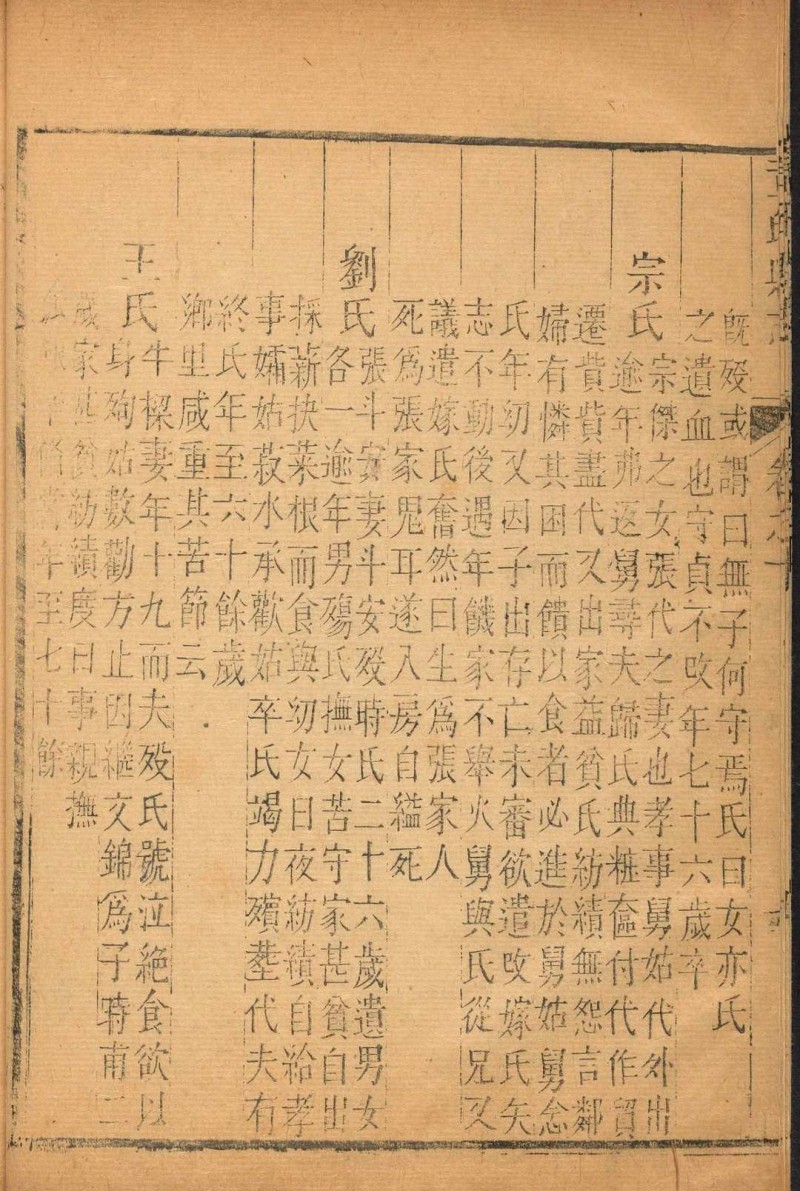 既歿或謂曰無子何守焉氏曰女亦氏
之遺血也守貞不改年七十六歲卒
宗氏宗傑之女張代之妻也孝事舅姑代外出
逾年弗返舅尋夫歸氏典粧奩付代作貿
遷貲貲盡代又出家益貧氏紡績無怨言鄰
婦有憐其困而饋以食者必進於舅姑舅念
氏年幼又因子出存亡未審欲遣改嫁氏矢
志不動後遇年饑家不舉火舅與氏從兄又
議遣嫁氏奮然曰生為張家人
死為張家鬼耳遂入房自縊死
劉氏張斗安妻斗安歿時氏二十六歲遺男女
各一逾年男殤氏撫女苦守家甚貧自出
採薪抉菜根而食與幼女日夜紡績自給孝
事孀姑菽水承歡姑卒氏竭力殯塟代夫有
終氏年至六十餘歲
鄉里咸重其苦節云
王氏牛樑妻年十九而夫歿氏號泣絕食欲以
身殉姑數勸方止因繼文錦為子時甫二
歲家貧紡績度日事親撫
年至七十餘